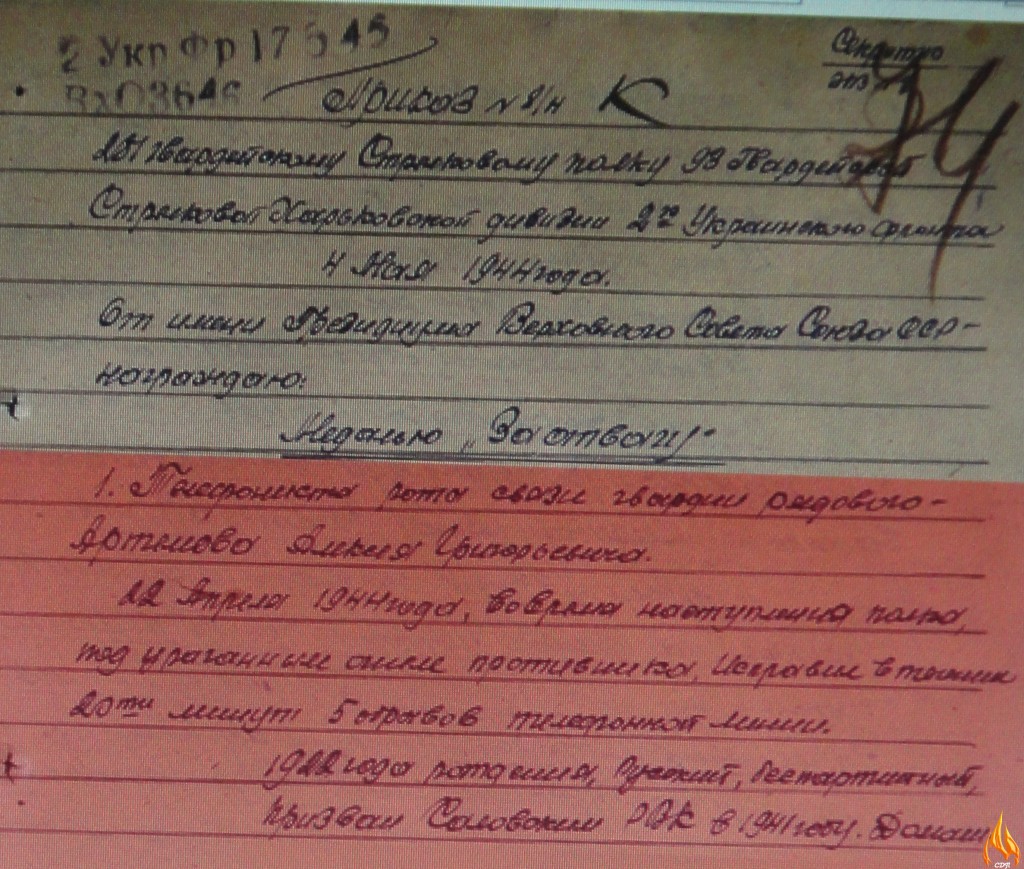 2 Укр Фр 17 5 45
Вх03646
Секретно
экз №
Приказ № 8/н К
281 гвардейскому Стрелковому полку 93 Гвардейской
Стрелковой Харьковской дивизии 2го Украинского фронта
4 Мая 1944 года.
От имени Президиума Верховного Совета Союза ССР-
награждаю:
Медалью „За отвагу"
1. Телефониста роты связи гвардии рядового-
Артемова Григорьевича.
22 Апреля 1944 года, во время наступления полка,
под ураганным огнем противника, исправил в течении
20ти минут 5 обрывов телефонной линии.
1922 года рождения, Русский, беспартийный,
призван РВК в 1941 году. Домаш
CDR